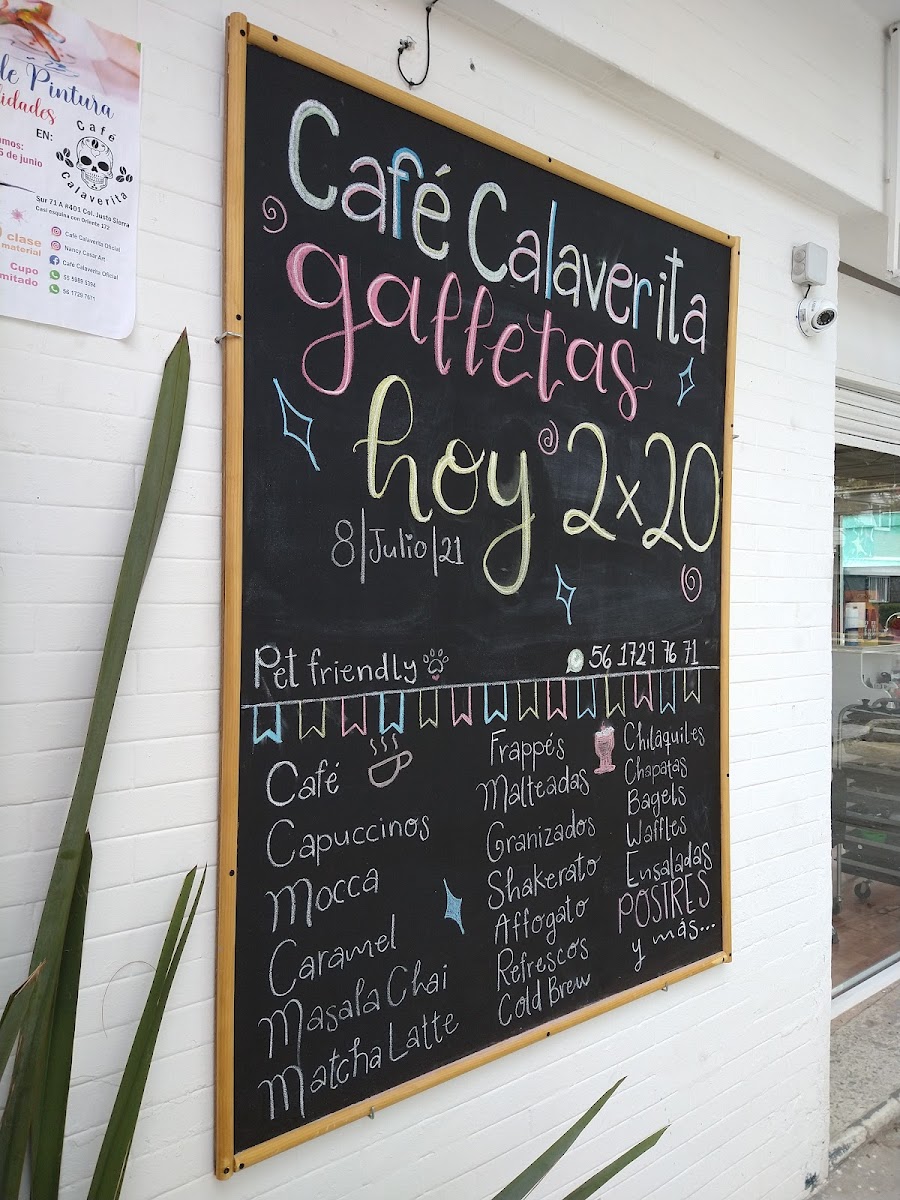 de Pintura
EN:
Café
Calaverita
Sur 71 A #401 Col. Justo Sierra
Casi esquina con Oriente 172
clase
material
Cupo
Café Calaverita Oficial
Nancy Casar Art
Café Calaverita Oficial
56 1729 7671
Café Calaverita
galletas
hoy 2x20
8|Julio|21
Pet friendly
56 1729 76 71
Café
Capuccinos
Mocca
Caramel
Masala Chai
Matcha Latte
Frappés
Malteadas
Granizados
Shakerato
Affogato
Refrescos
Cold Brew
Chilaquiles
Chapatas
Bagels
Waffles
Ensaladas
POSTRES
y más...